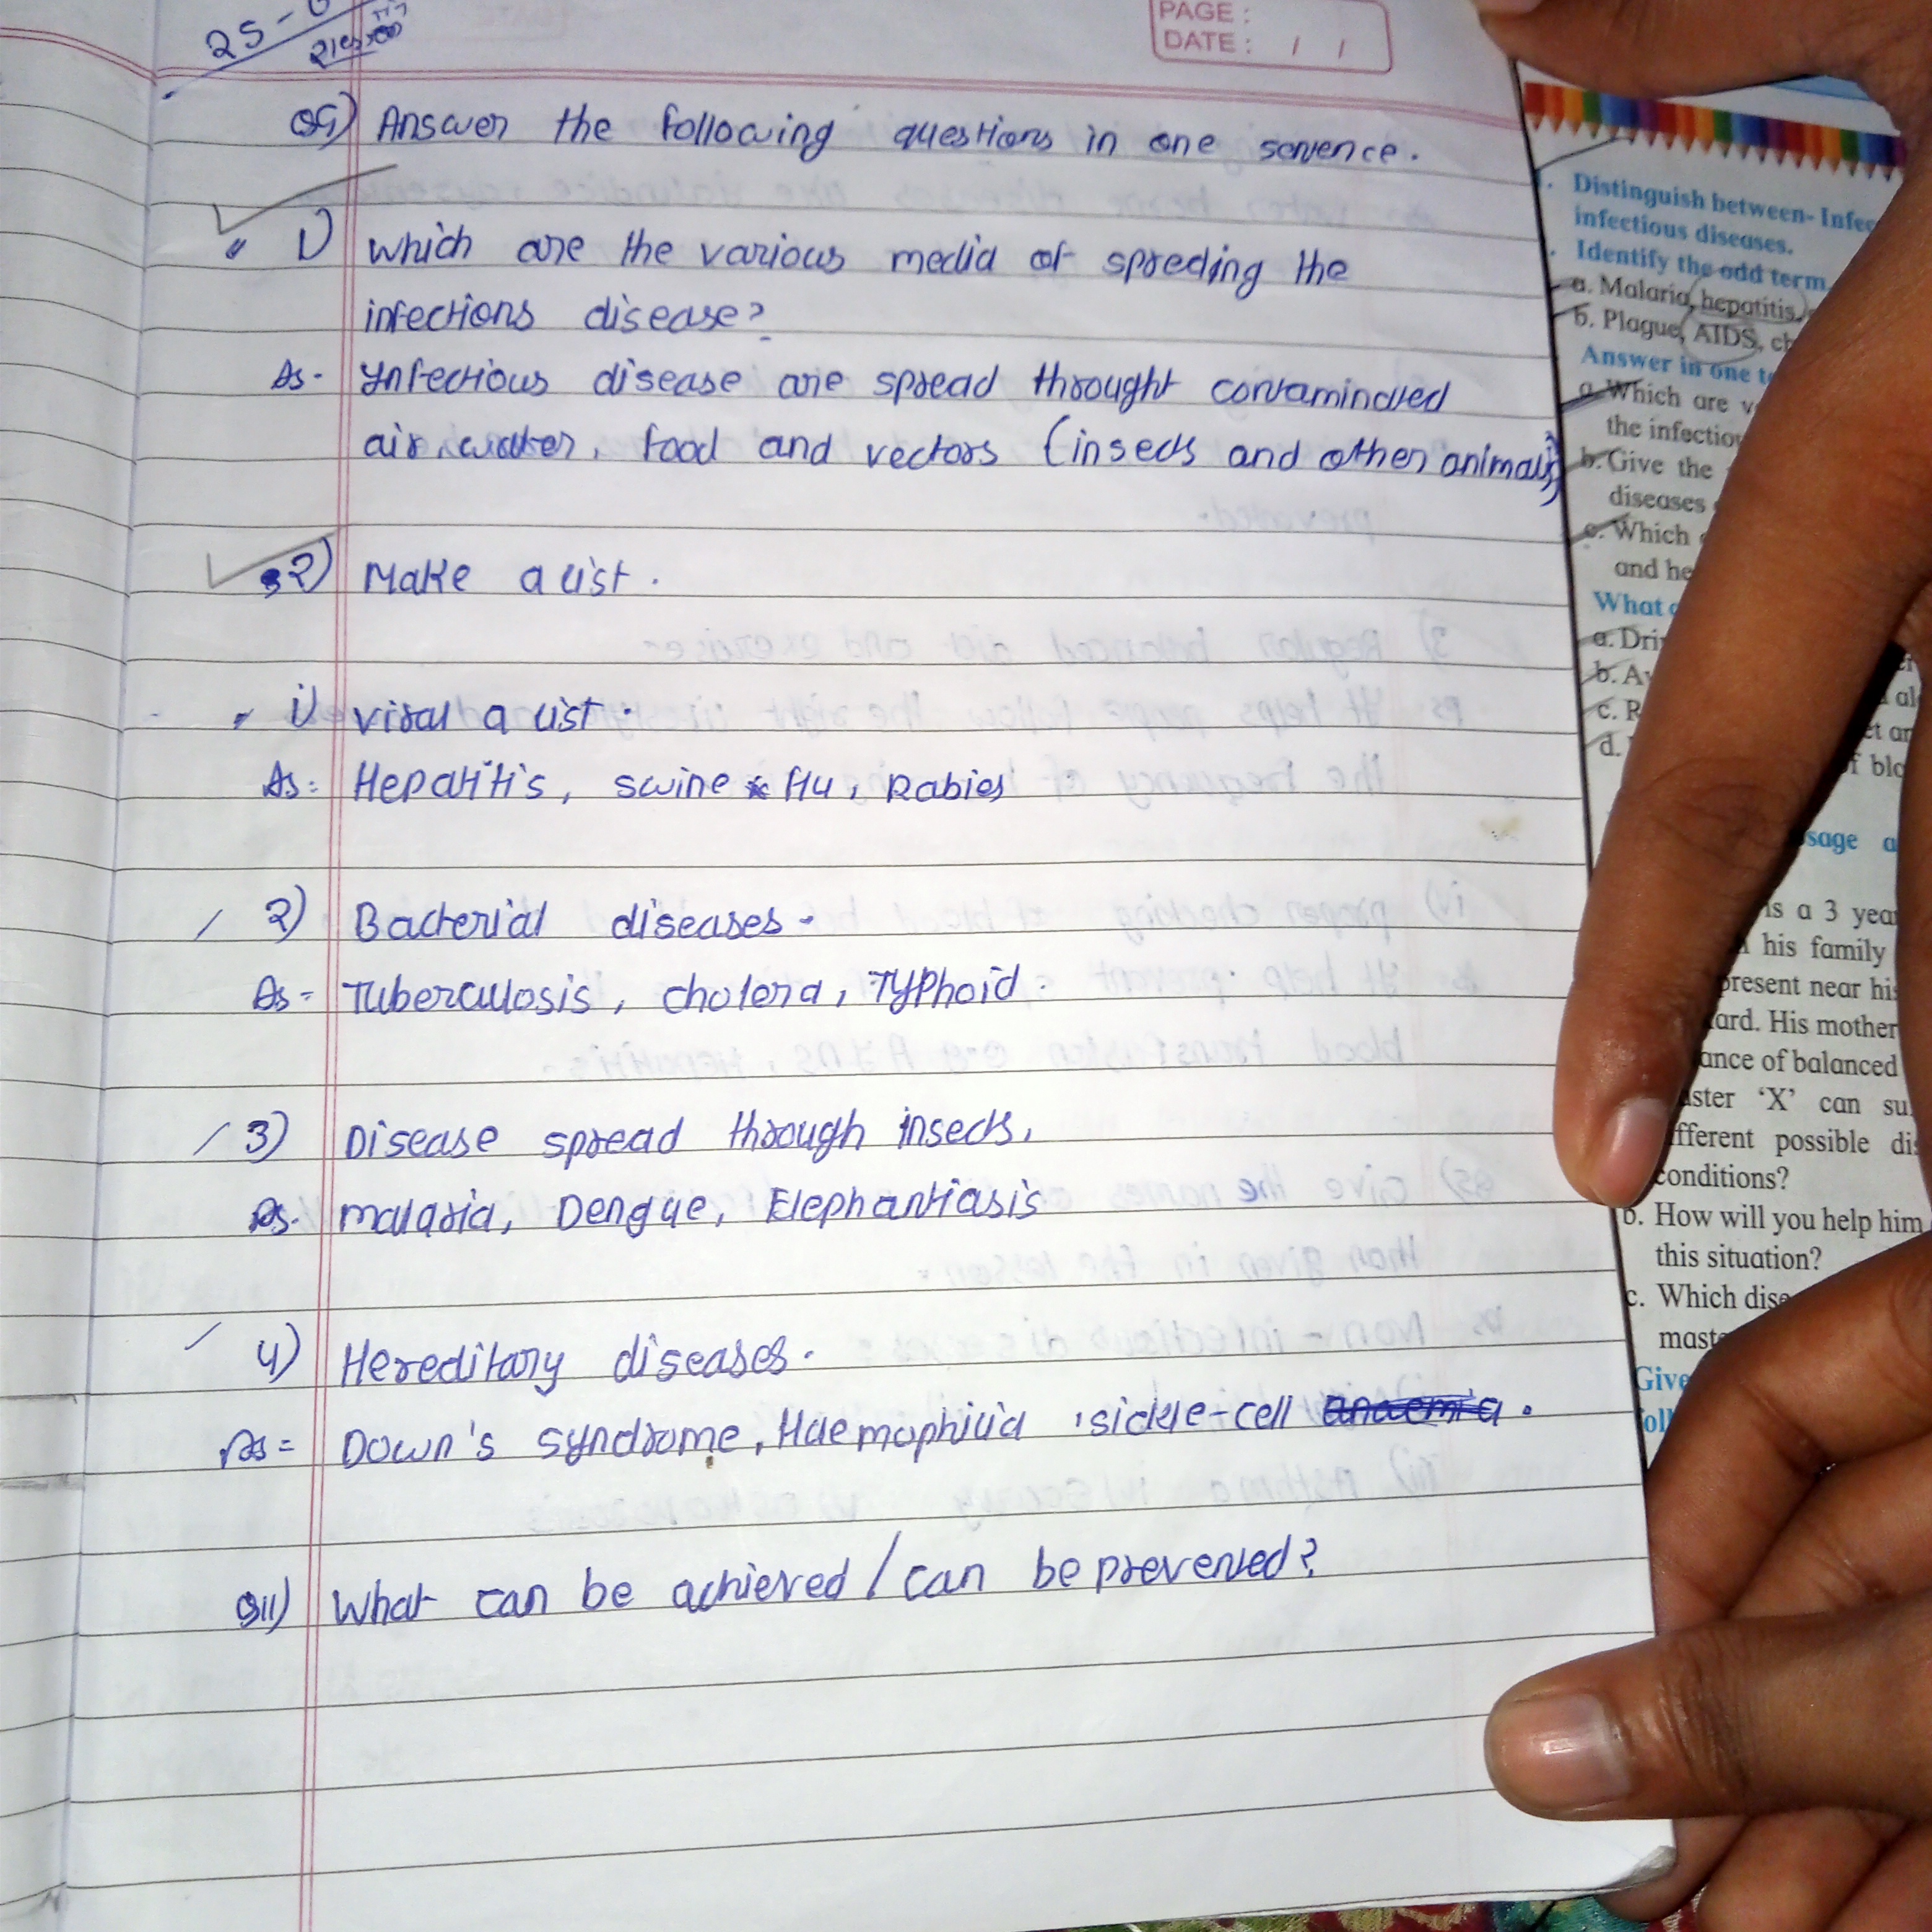 25-
PAGE :
DATE : / /
Answer the following questions in one senence.
1) which are the various media of spreding the
infections disease?
As- Infectious disease are spread throught contaminated
air, water, food and vectors (insects and other animals)
2) Make a list.
i) viral a list.
As: Hepatitis, swine flu, Rabies
2) Bacterial diseases-
As- Tuberculosis, cholera, Typhoid.
3) Disease spread through insects,
As- malaria, Dengue, Elephantiasis
4) Hereditary diseases.
As= Down's syndrome, Haemophilia, sickle-cell anaemia.
What can be achieved / can be prevented?
Distinguish between- Infec
infectious diseases.
Identify the odd term.
a. Malaria, hepatitis,
b. Plague, AIDS, ch
Answer in one
a. Which are
the infectio
b. Give the
diseases
c. Which
and he
What
a. Dri
b. A
c. R
d.
et
blo
sage a
is a 3 yea
his family
present near his
ard. His mother
ance of balanced
aster 'X' can su
fferent possible dis
conditions?
b. How will you help him
this situation?
c. Which dise
mast
Give